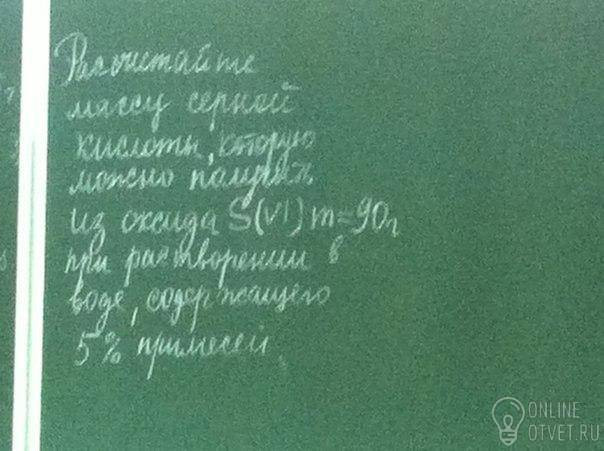 Рассчитайте
массу серной
кислоты, которую
можно получить
из оксида S(VI) m=90г
при растворении в
воде, содержащего
5% примесей.
ONLINE
OTVET.RU